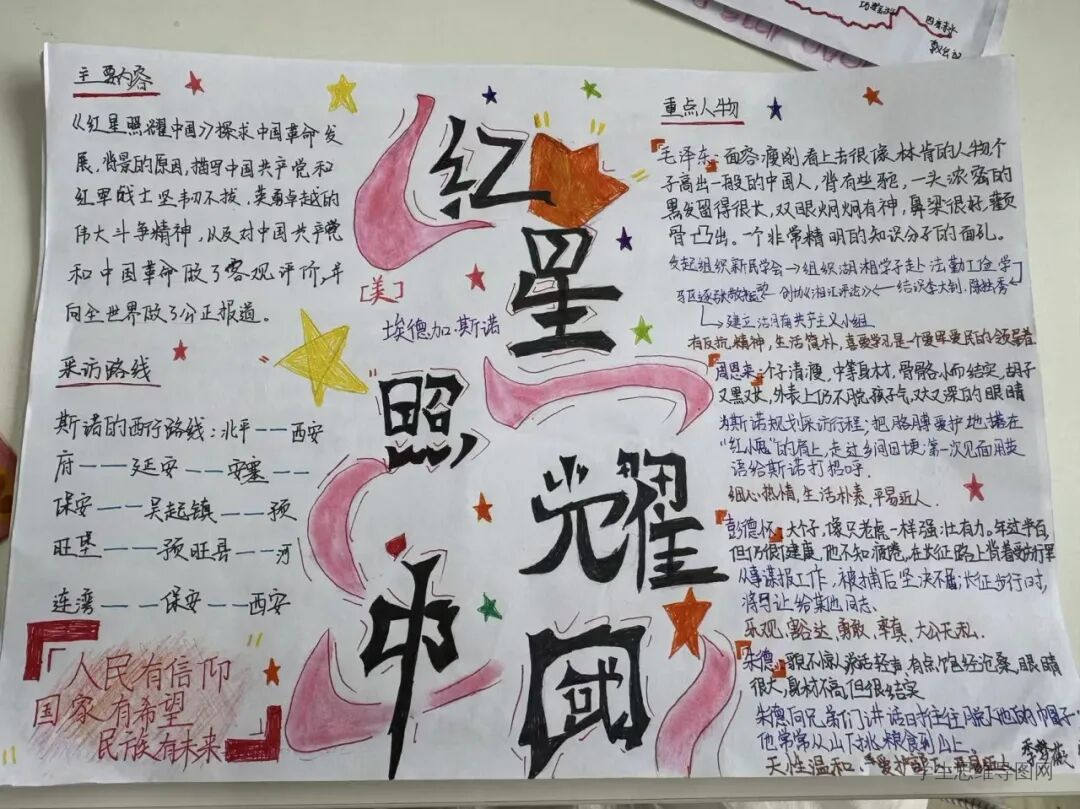 主要内容
《红星照耀中国》探求中国革命发
展,背景的原因,描写中国共产党和
红军战士坚韧不拔,英勇卓越的
伟大斗争精神,从及对中国共产党
和中国革命做了客观评价,并
向全世界做了公正报道。
采访路线
斯诺的西行路线:北平——西安
府——延安——安塞——
保安——吴起镇——预
旺堡——预旺县——河
连湾———保安——西安
人民有信仰
国家有希望
民族有未来
红
星
照
耀
中
国
[美]
埃德加斯诺
重点人物
毛泽东:面容瘦削看上去很像林肯的人物个
子高出一般的中国人,背有些驼,一头浓密的
黑发留得很长,双眼炯炯有神,鼻梁很好,颧
骨凸出。一个非常精明的知识分子的面孔。
发起组织新民学会→组织湖湘学子赴法勤工俭学
创办《湘江评论》←结识李大钊、陈独秀
建立湖南共产主义小组
有反抗精神,生活简朴,喜爱学习是个爱军爱民的领导者
周恩来:个子清瘦,中等身材,骨骼小而结实,胡子
又黑又长,外表上仍不脱孩子气,又大又深的眼睛
为斯诺规划采访行程;把胳膊爱护地搭在
"红小鬼"的肩上,走过乡间田埂;第一次见面用英
语给斯诺打招呼.
细心热情,生活朴素,平易近人.
彭德怀:大个子,像只老虎一样强壮有力。年过半百,
但仍很健康,他不知疲倦,在长征路上背着
从事谍报工作,被捕后坚决不屈;长征步行时,
将马让给其他同志.
乐观,豁达,勇敢,率真,大公无私.
朱德:貌不惊人,说话轻声,有点饱经沧桑,眼睛
很大,身材不高,但很结实
朱德向兄弟们讲话时往往脱下他的帽子
他常常从山下挑粮食到山上
天性温和、爱护部下
季梦薇
学生思维导图网
四月